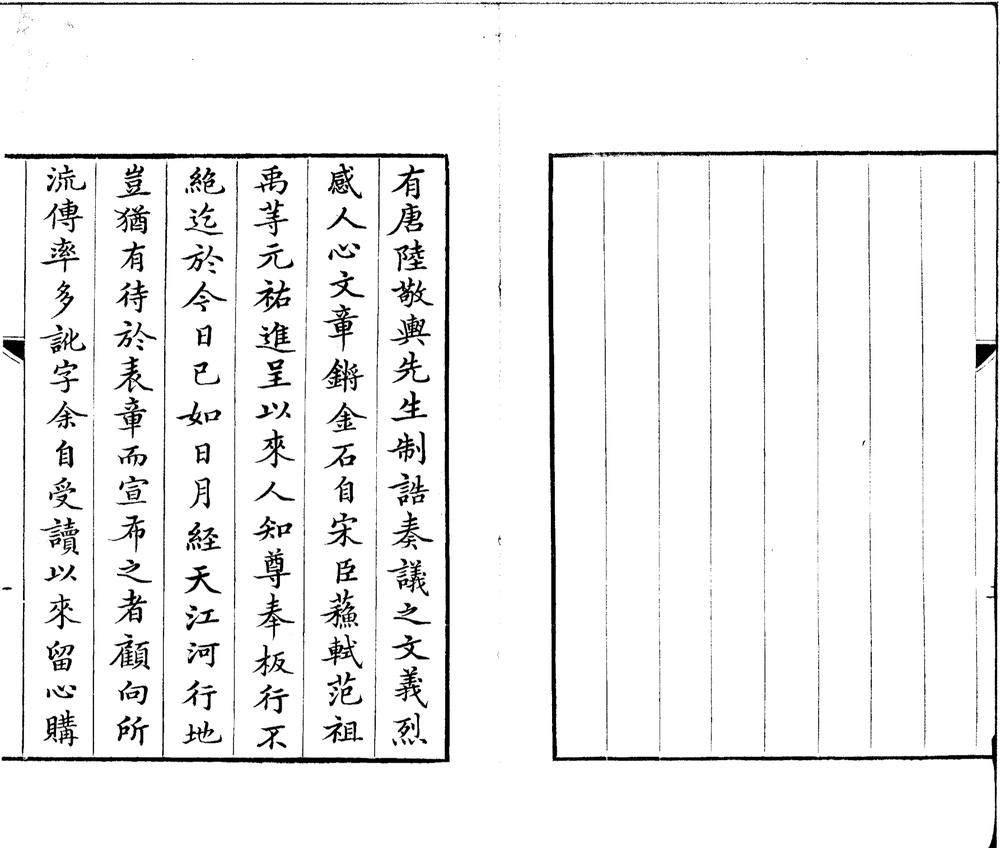 有唐陸敬輿先生制誥奏議之文義烈
感人心文章鏘金石自宋臣蘓軾范祖
禹等元祐進呈以來人知尊奉板行不
絕迄於今日已如日月經天江河行地
豈猶有待於表章而宣布之者顧向所
流傳率多訛字余自受讀以來留心購